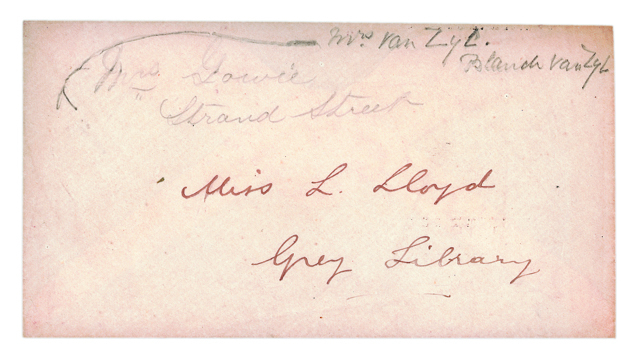 Mrs Van Zyl.
Blanch Van Zyl
Mrs Dowie
Strand Street
Miss L. Lloyd
Grey Library